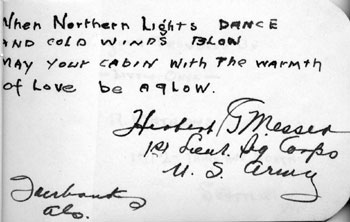 When Northern Lights DANCE
AND COLD WINDS BLOW
MAY YOUR CABIN WITH THE WARMTH
of Love be AGLOW.
Herbert G Messer
1st Lieut Sig Corps
U. S. Army
Fairbanks